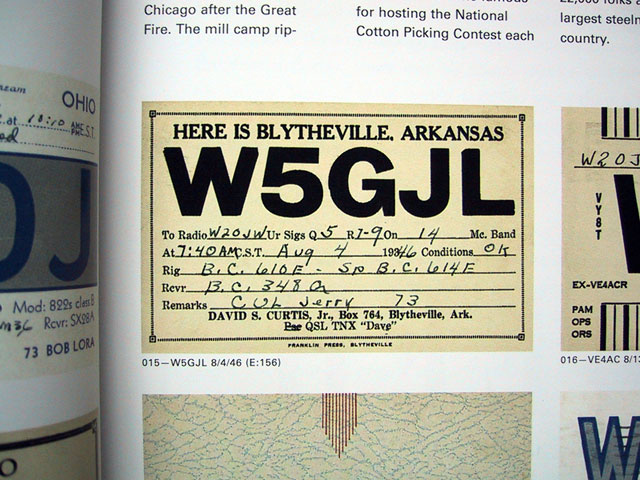 Chicago after the Great
Fire. The mill camp rip-
for hosting the National
Cotton Picking Contest each
largest steeln
country.
OHIO
at 10:10 A.M. E.S.T.
OJ
Mod: 822s class B
Rcvr: SX28A
73 BOB LORA
HERE IS BLYTHEVILLE, ARKANSAS
W5GJL
To Radio W2OJW Ur Sigs Q 5 R 7-9 On 14 Mc. Band
At 7:40 AM C.S.T. Aug 4 1946 Conditions OK
Rig B.C. 610E - Sp B.C. 614E
Rcvr. B.C. 348Q
Remarks CUL Jerry 73
DAVID S. CURTIS, Jr., Box 764, Blytheville, Ark.
Pse QSL TNX "Dave"
FRANKLIN PRESS, BLYTHEVILLE
015—W5GJL 8/4/46 (E:156)
W2OJ
VY8T
EX-VE4ACR
PAM
OPS
ORS
016—VE4AC 8/13
W